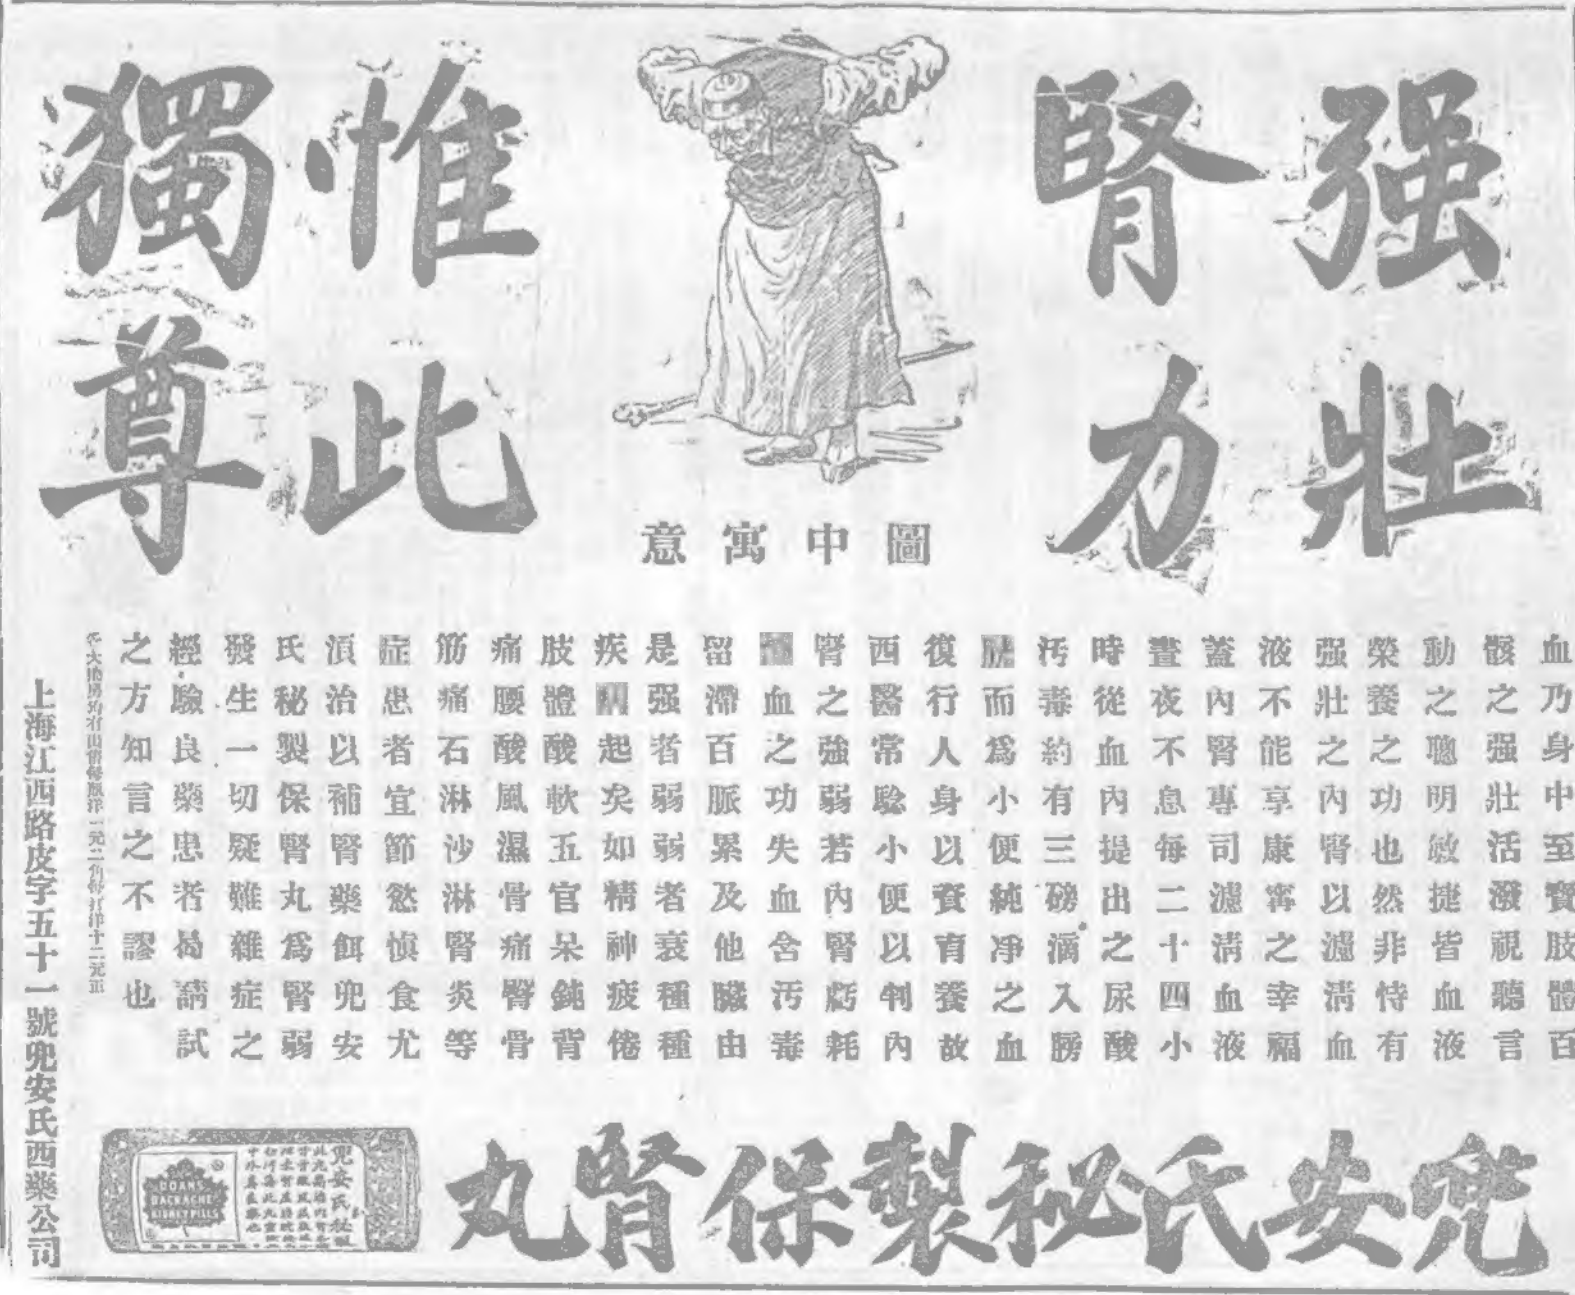 强壯
腎力
惟此
獨尊
圖中寓意
血乃身中至寶肢體百
骸之强壯活潑視聽言
動之聰明敏捷皆血液
榮養之功也然非恃有
强壯之內腎以濾淸血
液不能享康寗之幸福
蓋內腎專司濾淸血液
晝夜不息每二十四小
時從血內提出之尿酸
汚毒約有三磅滴入膀
胱而爲小便純净之血
復行人身以資育養故
西醫常騐小便以判內
腎之强弱若內腎虧耗
血之功失血含汚毒
留滯百脈累及他臟由
是强者弱弱者衰種種
疾病起矣如精神疲倦
肢體酸軟五官呆鈍背
痛腰酸風濕骨痛臀骨
筋痛石淋沙淋腎炎等
症患者宜節慾愼食尤
湏治以補腎藥餌兜安
氏秘製保腎丸爲腎弱
發生一切疑難雜症之
經驗良藥患者曷請試
之方知言之不謬也
每瓶洋一元二角每打洋十二元正
上海江西路皮字五十一號兜安氏西藥公司
兜安氏秘製保腎丸
兜安氏秘製
DOANS
BACKACHE
KIDNEY PILLS